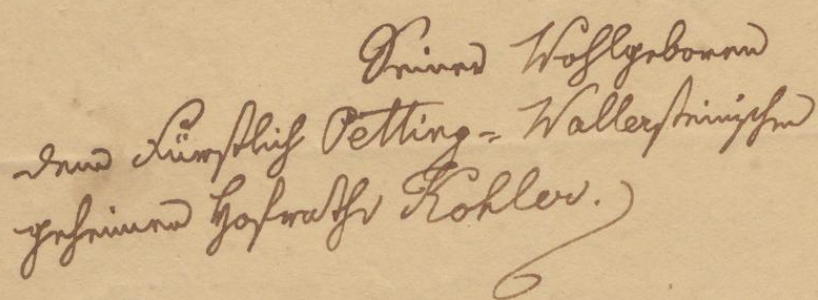 Seiner Wohlgeboren
dem Fürstlich Oetting-Wallersteinischen
geheimen Hofrathe Kohler.